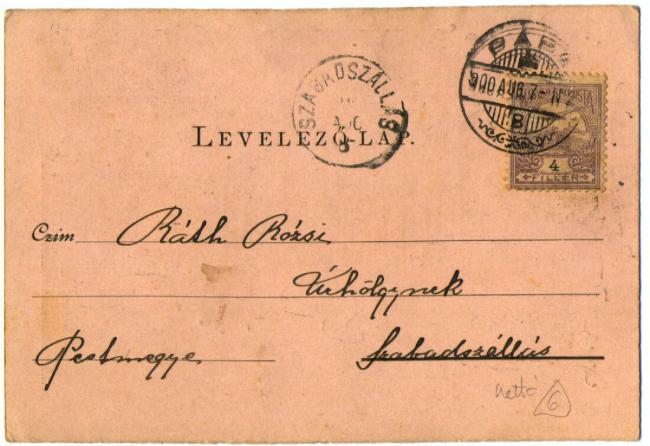 PÁPA
900 AUG. 7. N
B
SZABADSZÁLLÁS
AUG
8
LEVELEZŐ-LAP.
4
FILLÉR
Czim Ráth Rózsi
Úrhölgynek
Pestmegye Szabadszállás
nettó 6